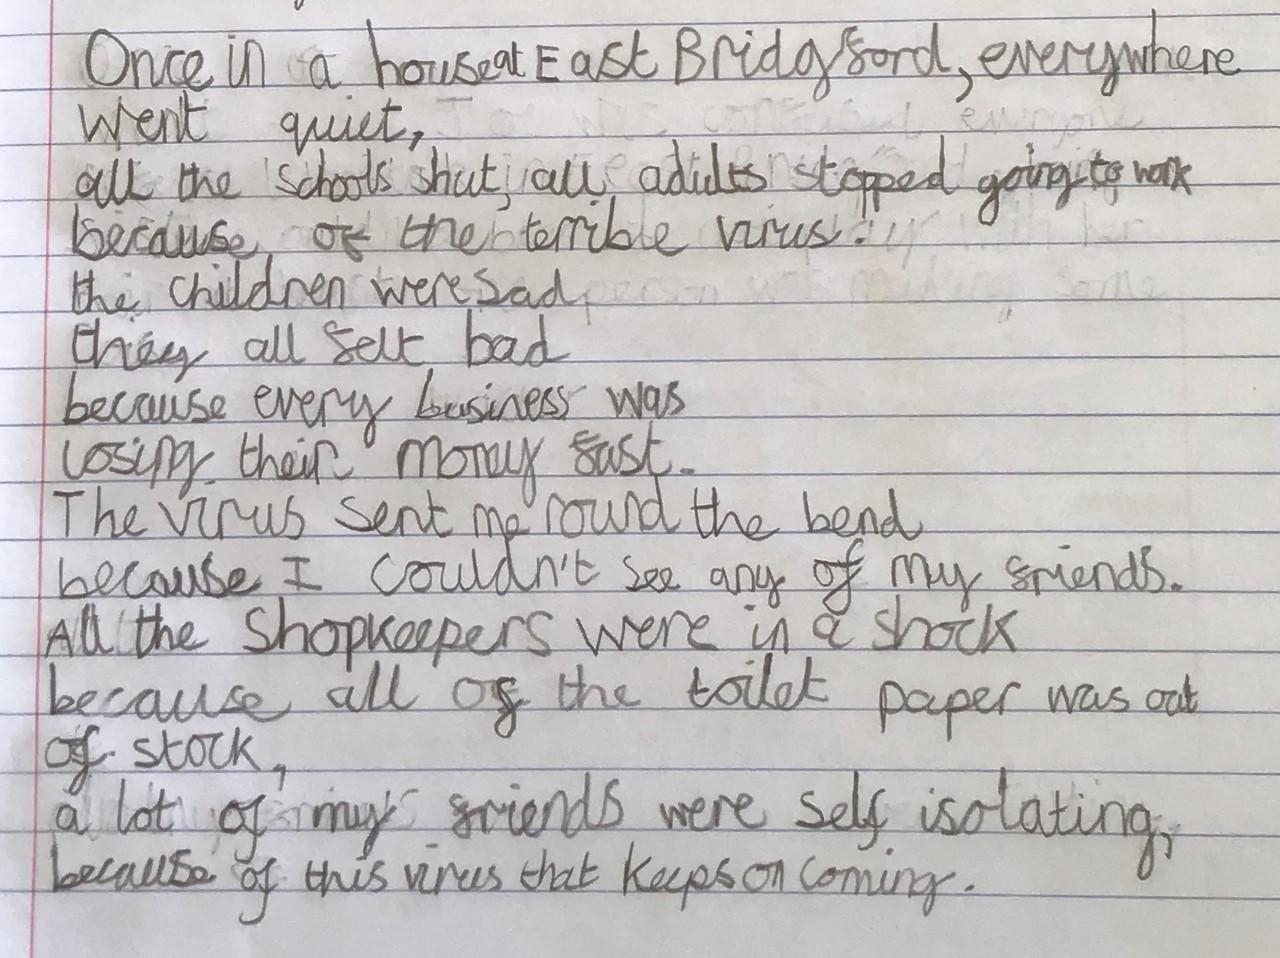 Once in a house at East Bridgford, everywhere
went quiet,
all the schools shut, all adults stopped going to work
because of the terrible virus.
the children were sad
they all felt bad
because every business was
losing their money fast.
The virus sent me round the bend
because I couldn't see any of my friends.
All the shopkeepers were in a shock
because all of the toilet paper was out
of stock,
a lot of my friends were self isolating,
because of this virus that keeps on coming.